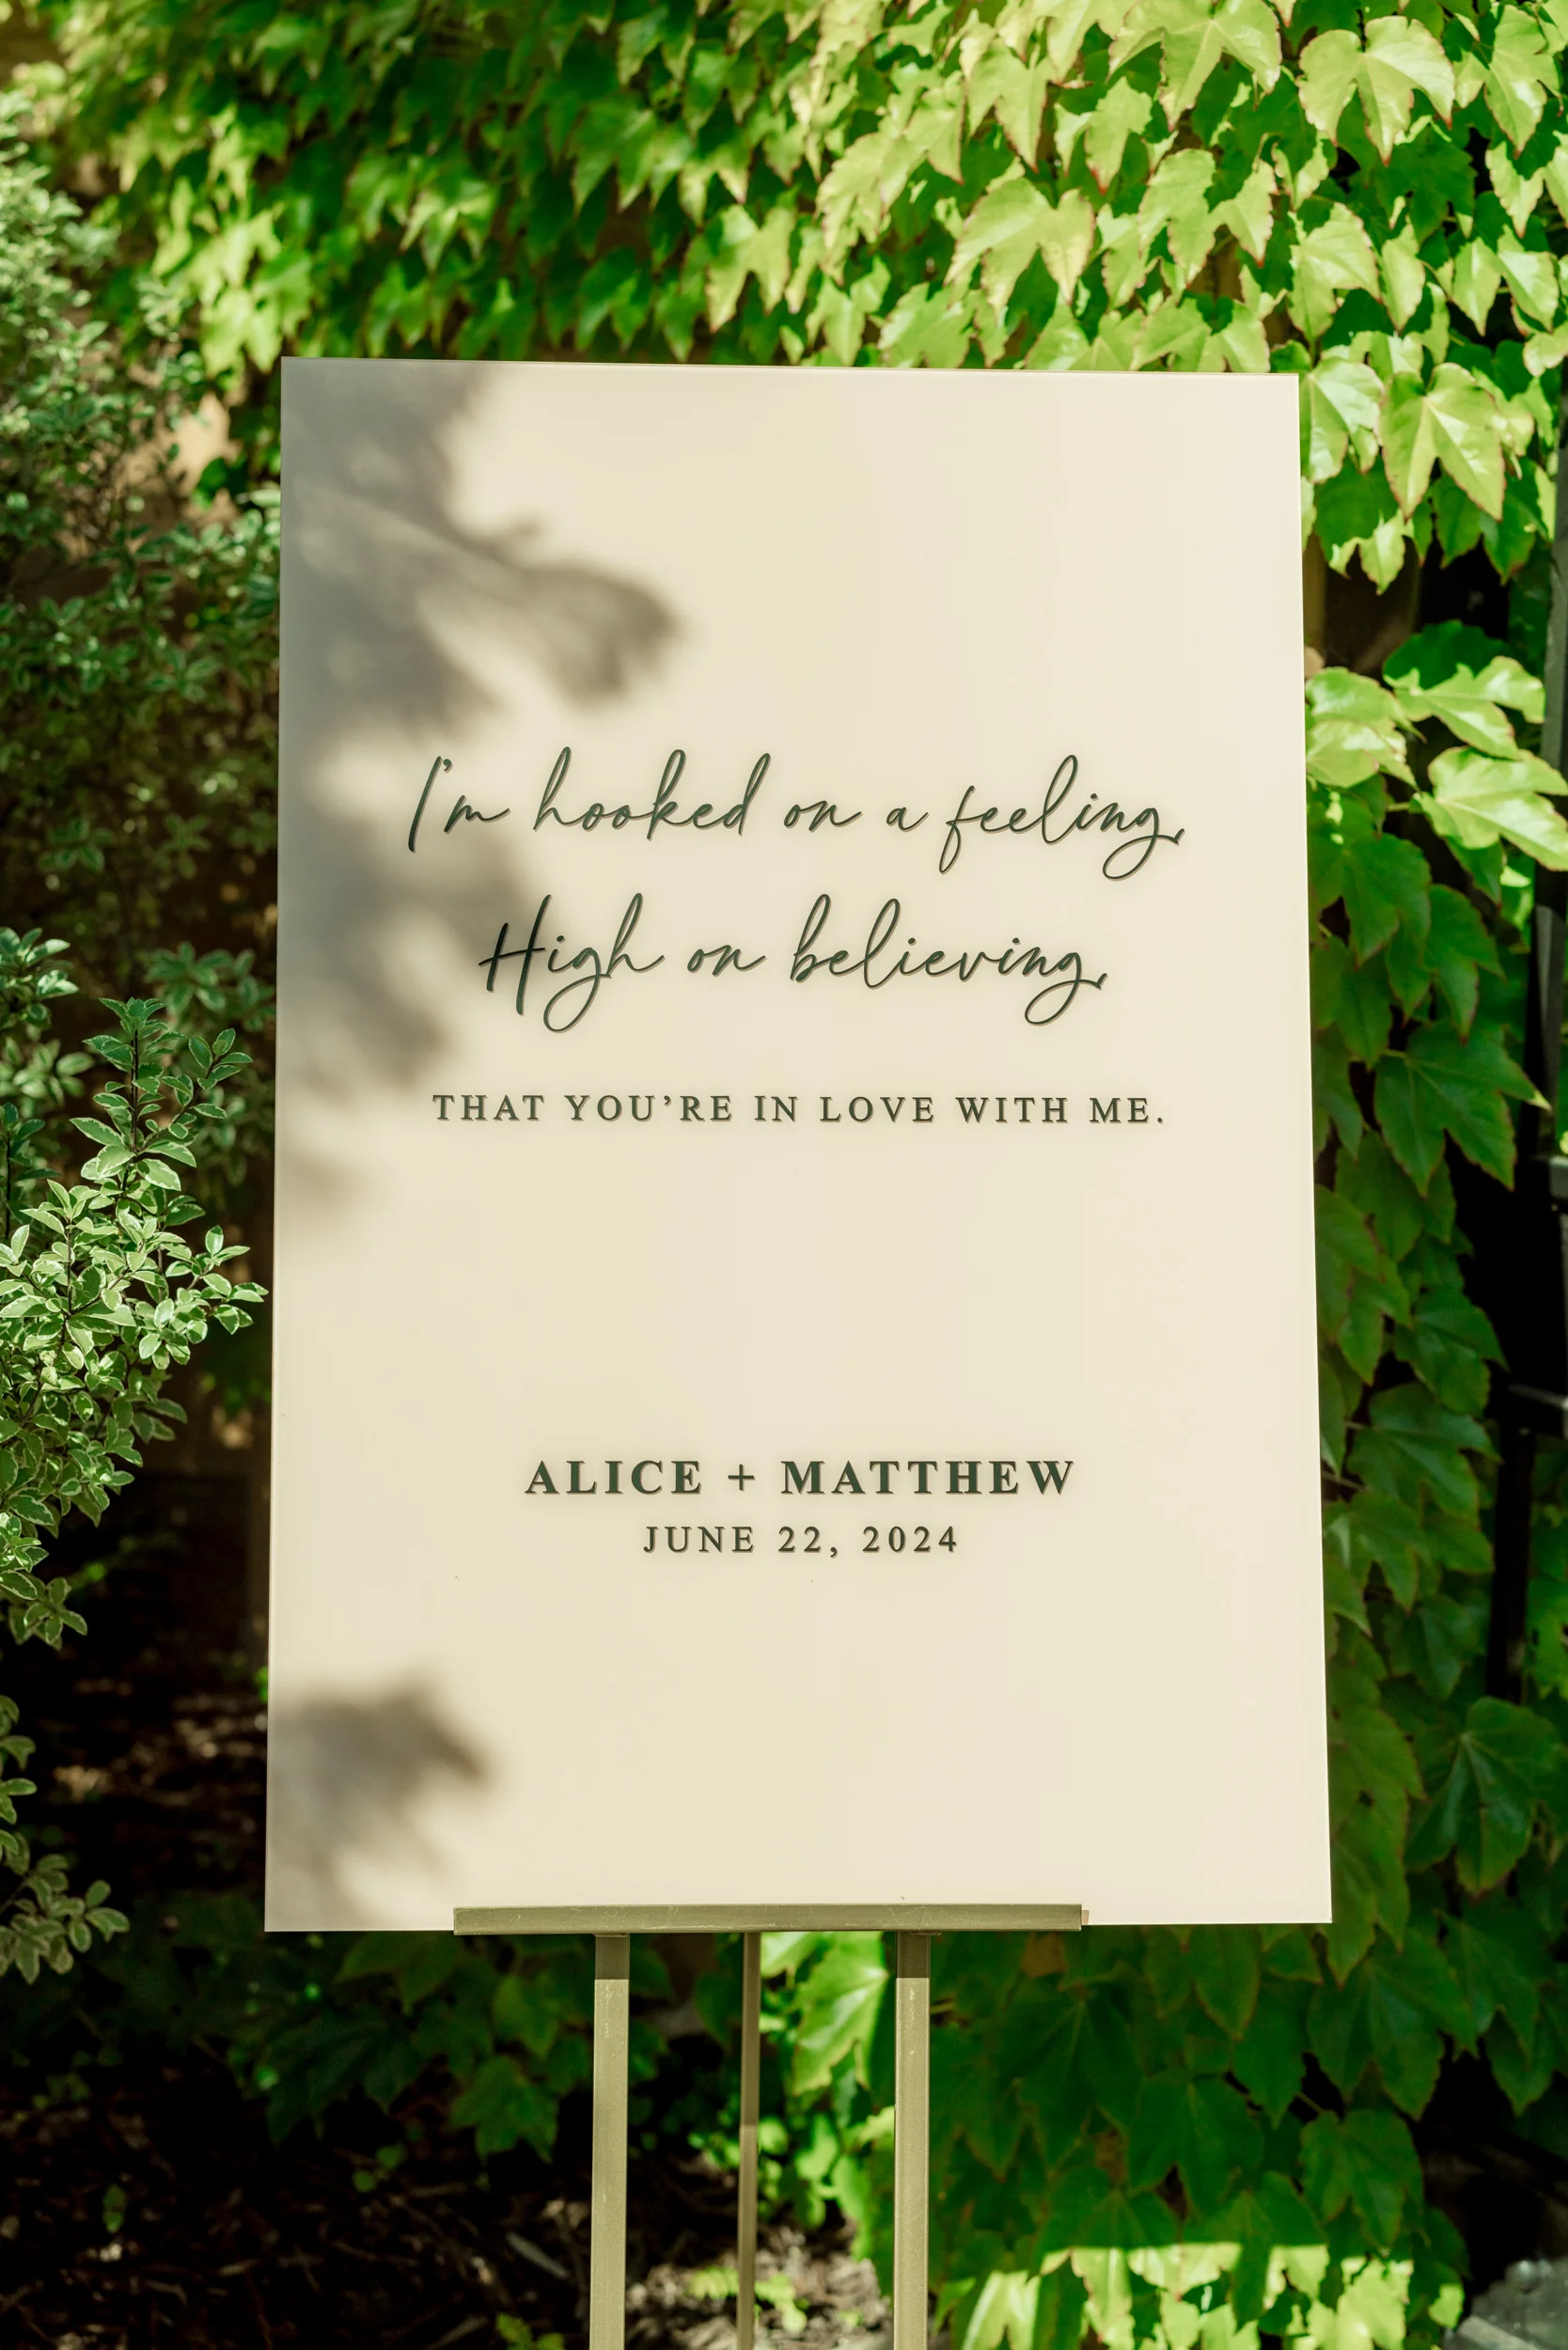 I'm hooked on a feeling,
High on believing,
THAT YOU'RE IN LOVE WITH ME.
ALICE + MATTHEW
JUNE 22, 2024